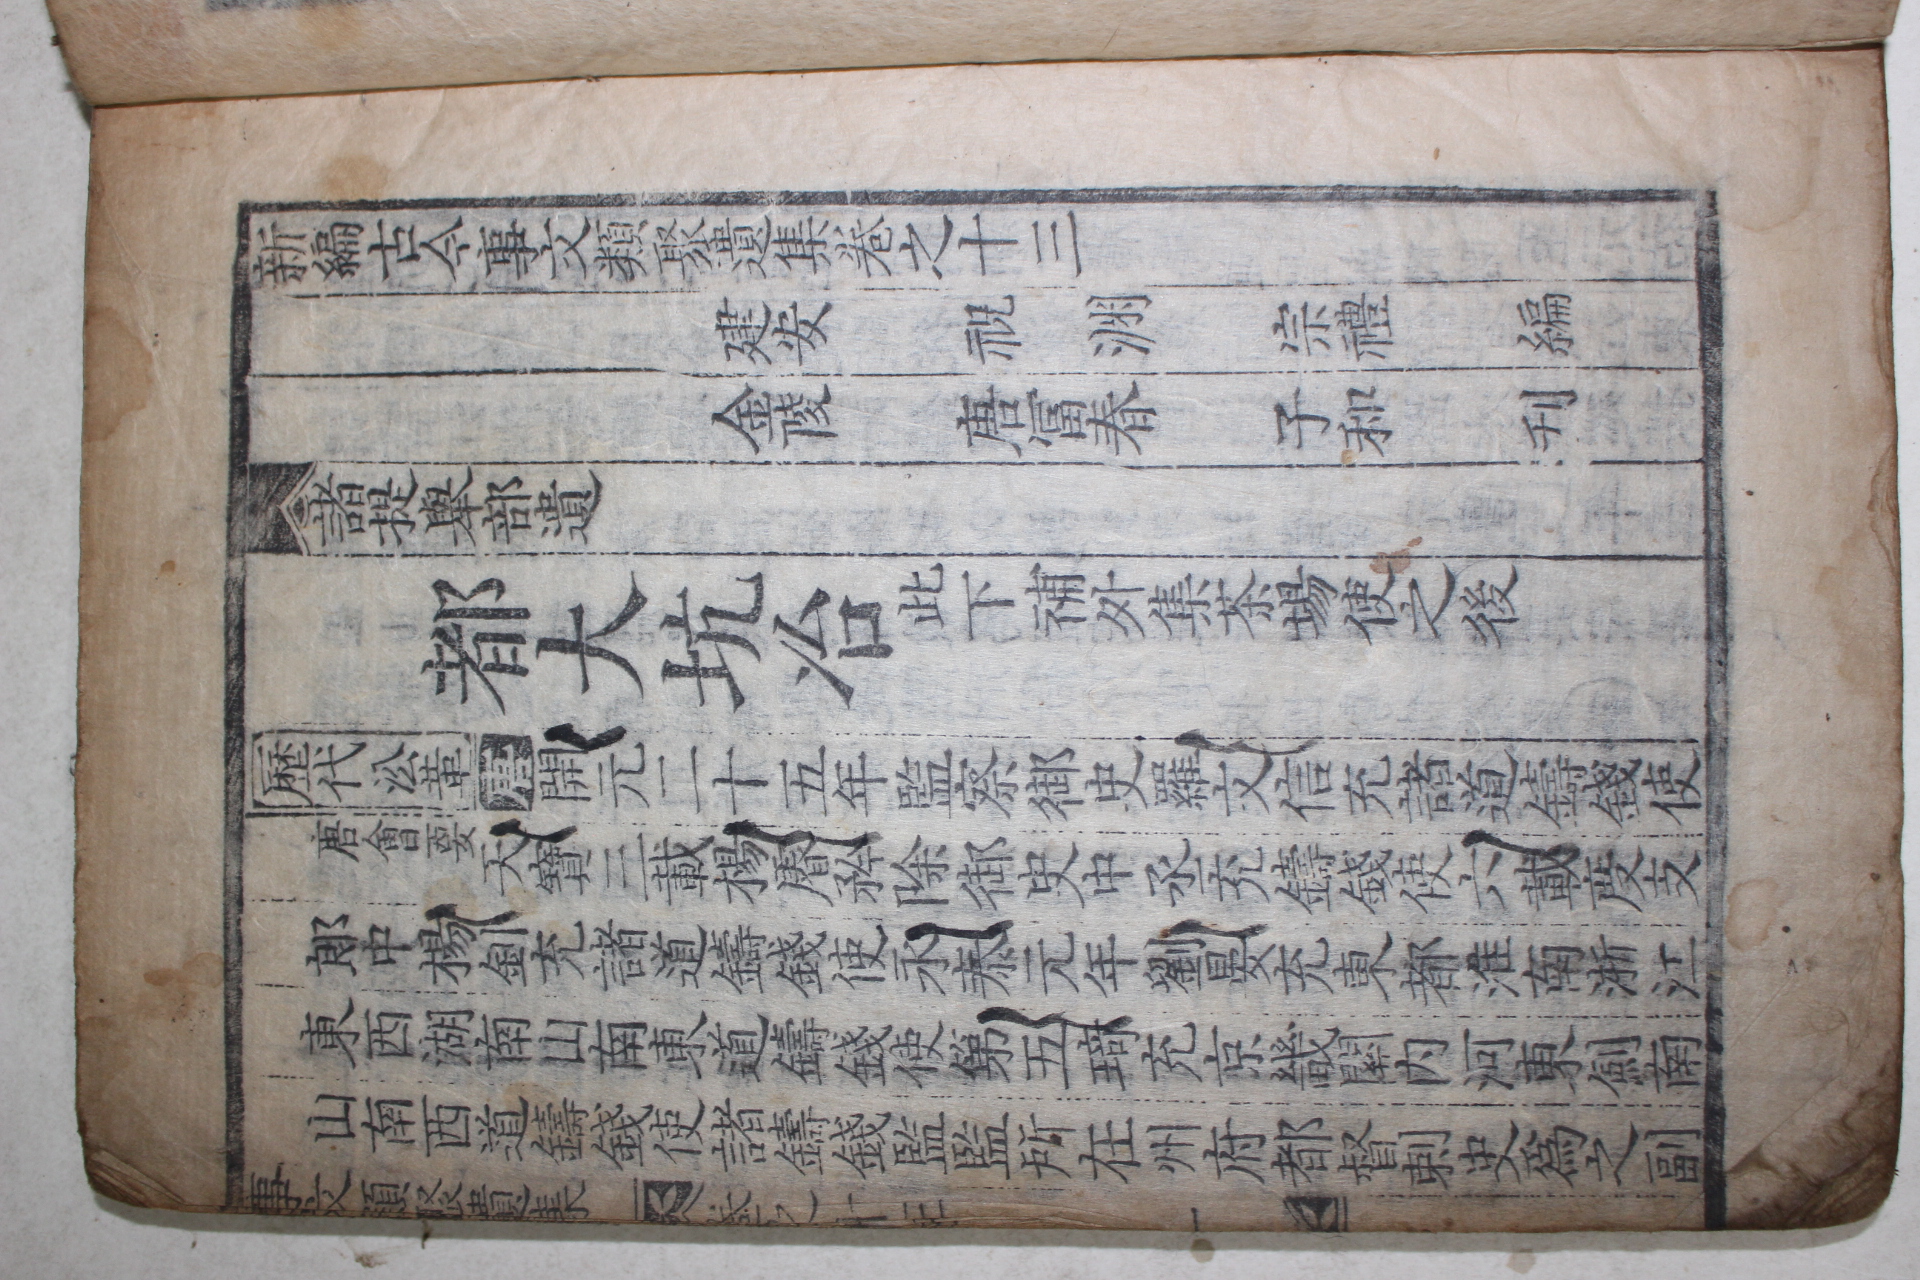 新編古今事文類聚遺集卷之十三
建安 祝淵 宗禮 編
金陵 唐富春 子和 刊
諸提舉部遺
都大坑冶 此下補外集茶場使之後
歷代沿革 唐 開元二十五年監察御史羅文信充諸道鑄錢使
唐會要 天寶三載楊慎矜除御史中丞充鑄錢使六載度支
郎中楊釗充諸道鑄錢使永泰元年劉晏充東都淮南浙江
東西湖南山南東道鑄錢使第五琦充京畿關內河東劍南
山南西道鑄錢使諸鑄錢監監所在州府都督刺史爲之副
事文類聚遺集 卷之十三 一